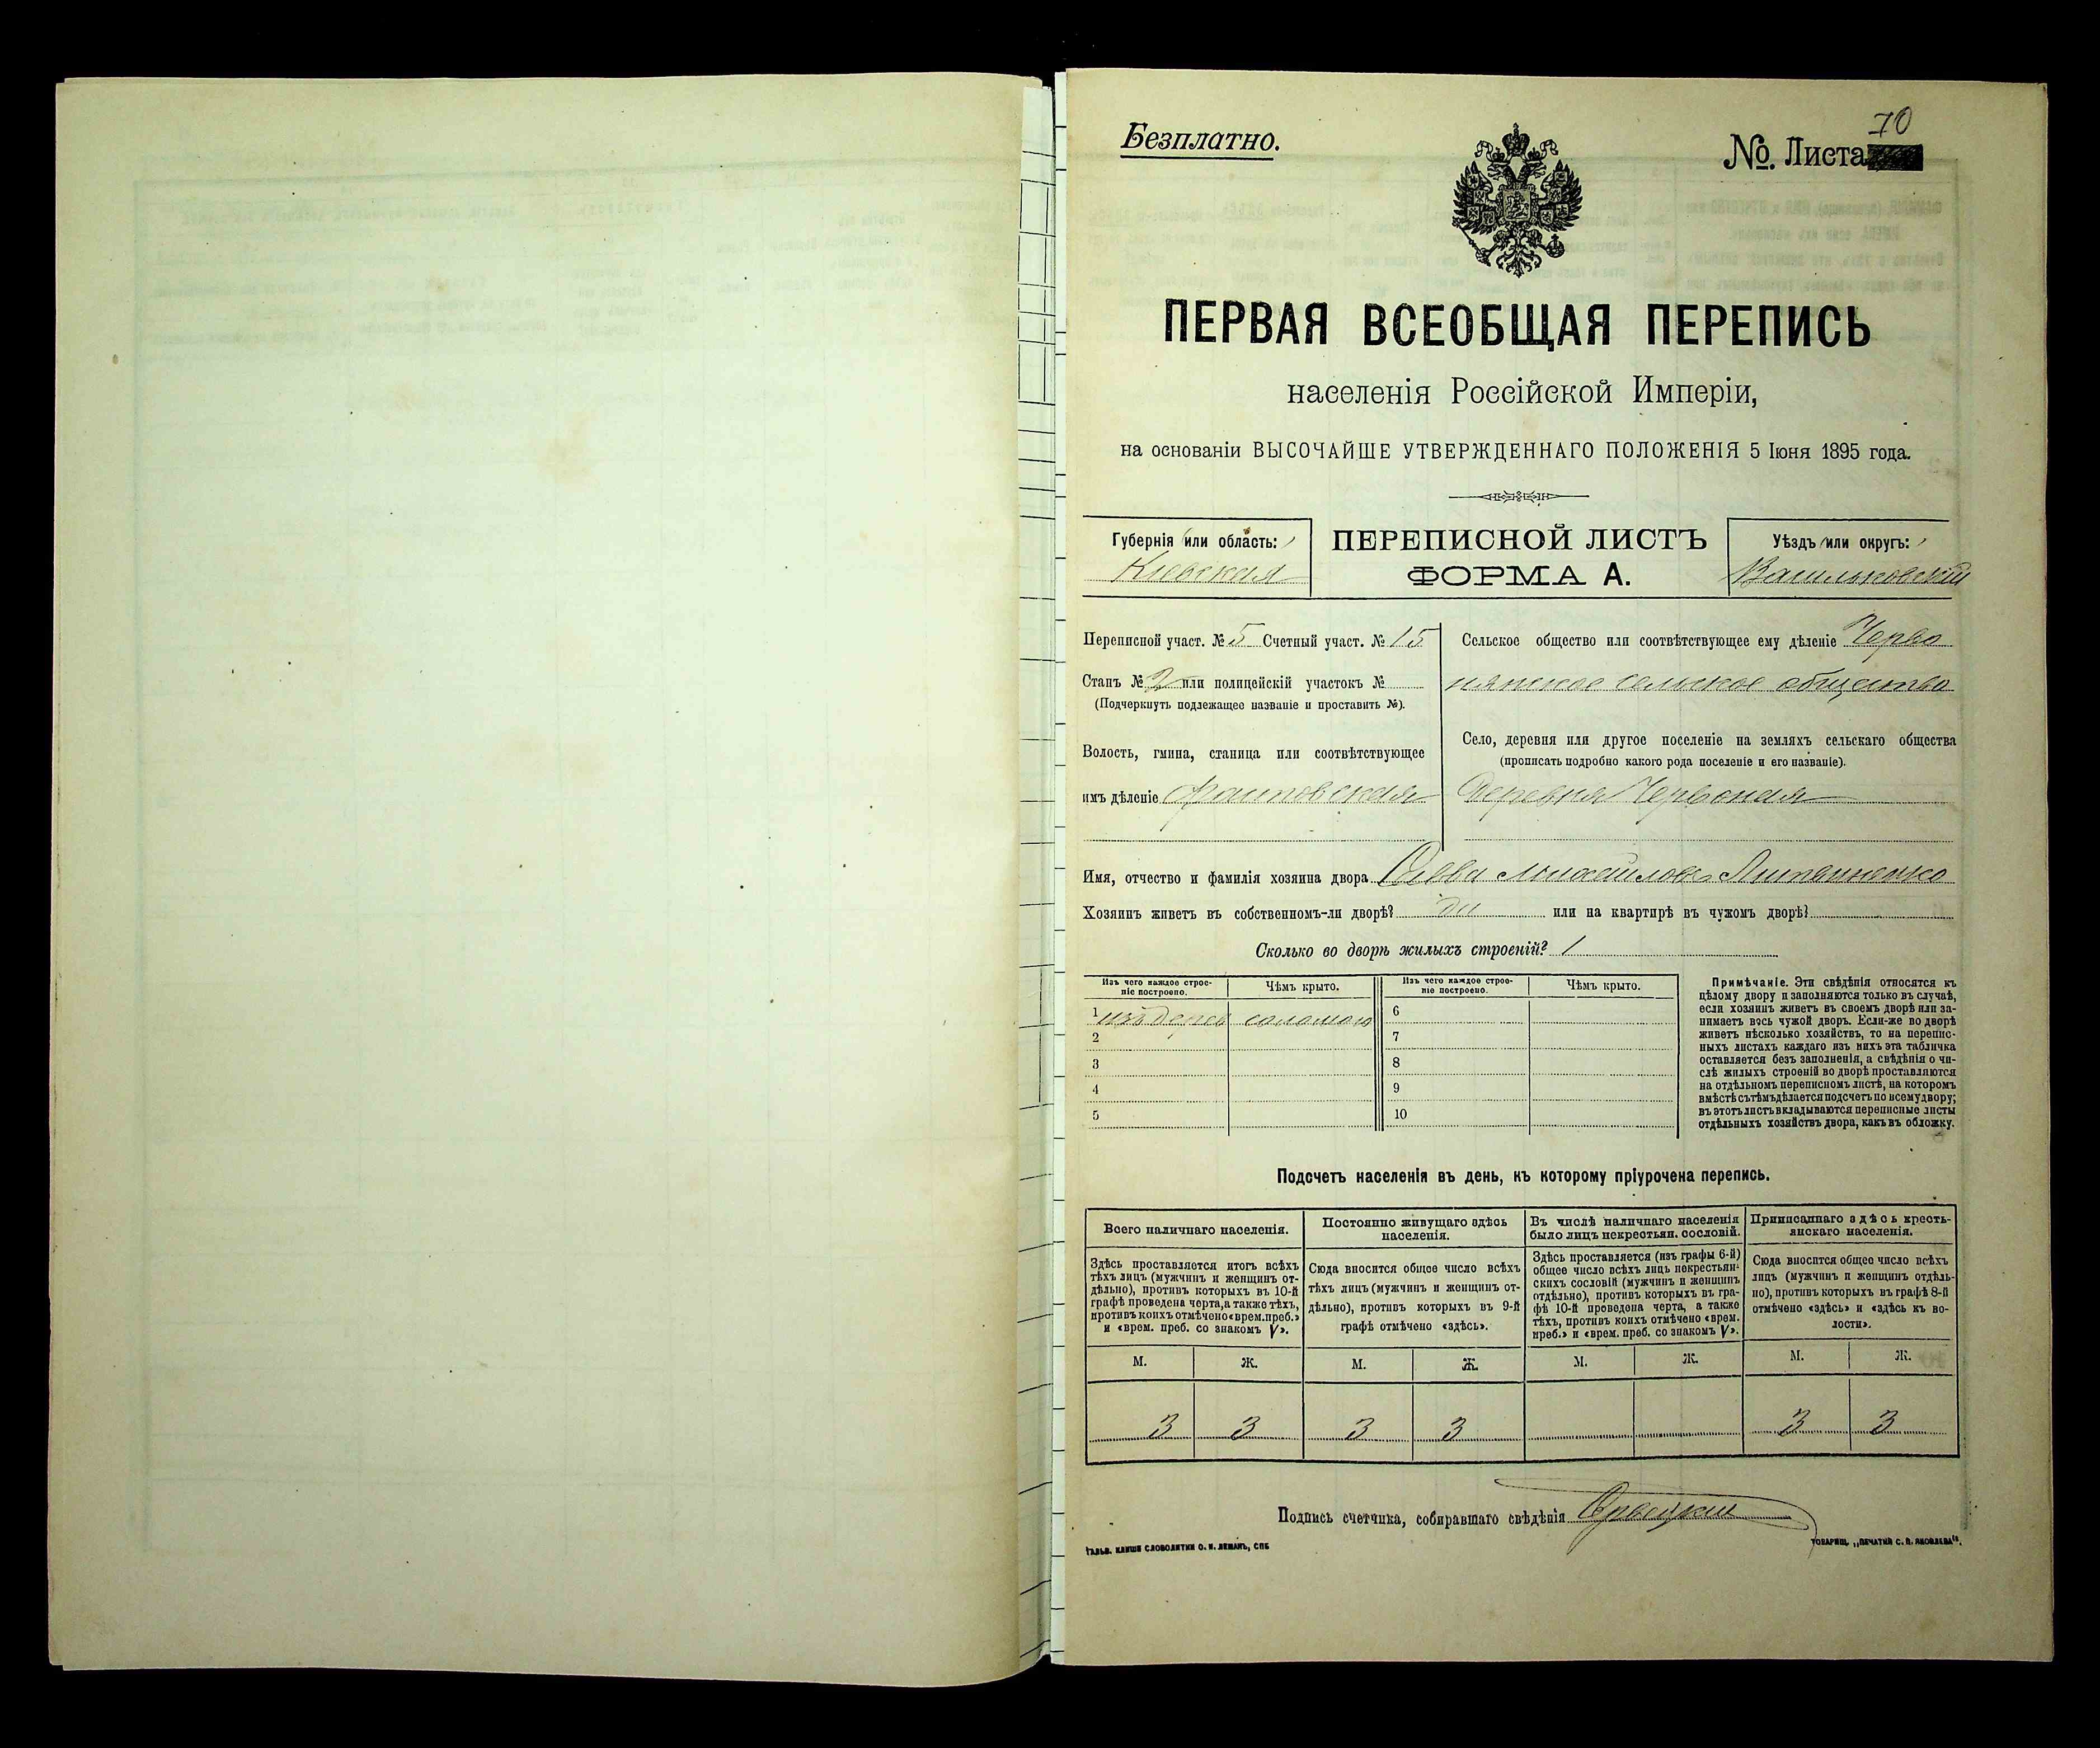 Безплатно.
70
№. Листа
ПЕРВАЯ ВСЕОБЩАЯ ПЕРЕПИСЬ
населенія Россійской Имперіи,
на основаніи ВЫСОЧАЙШЕ УТВЕРЖДЕННАГО ПОЛОЖЕНІЯ 5 Іюня 1895 года.
Губернія или область:
Кіевская
ПЕРЕПИСНОЙ ЛИСТЪ
ФОРМА А.
Уѣздъ или округъ:
Васильковскій
Переписной участ. № 5 Счетный участ. № 15
Станъ № 2 или полицейскій участокъ №
(Подчеркнуть подлежащее названіе и проставить №).
Волость, гмина, станица или соотвѣтствующее
имъ дѣленіе
Сельское общество или соотвѣтствующее ему дѣленіе Черво
нянское сельское общество
Село, деревня или другое поселеніе на земляхъ сельскаго общества
(прописать подробно какого рода поселеніе и его названіе).
Деревня Червоная
Имя, отчество и фамилія хозяина двора Савва Михайловъ Литвиненко
Хозяинъ живетъ въ собственномъ-ли дворѣ? да или на квартирѣ въ чужомъ дворѣ?
Сколько во дворѣ жилыхъ строеній? 1
Изъ чего каждое строе-
ніе построено.
Чѣмъ крыто.
Изъ чего каждое строе-
ніе построено.
Чѣмъ крыто.
1 изъ дерев соломою
2
3
4
5
6
7
8
9
10
Примѣчаніе. Эти свѣдѣнія относятся къ
цѣлому двору и заполняются только въ случаѣ,
если хозяинъ живетъ въ своемъ дворѣ или за-
нимаетъ весь чужой дворъ. Если-же во дворѣ
живетъ нѣсколько хозяйствъ, то на перепис-
ныхъ листахъ каждаго изъ нихъ эта табличка
оставляется безъ заполненія, а свѣдѣнія о чи-
слѣ жилыхъ строеній во дворѣ проставляются
на отдѣльномъ переписномъ листѣ, на которомъ
вмѣстѣ съ тѣмъ дѣлается подсчетъ по всему двору;
въ этотъ листъ вкладываются переписные листы
отдѣльныхъ хозяйствъ двора, какъ въ обложку.
Подсчетъ населенія въ день, къ которому пріурочена перепись.
Всего наличнаго населенія.
Здѣсь проставляется итогъ всѣхъ
тѣхъ лицъ (мужчинъ и женщинъ от-
дѣльно), противъ которыхъ въ 10-й
графѣ проведена черта, а также тѣхъ,
противъ коихъ отмѣчено «врем. преб.»
и «врем. преб. со знакомъ V».
Постоянно живущаго здѣсь
населенія.
Сюда вносится общее число всѣхъ
тѣхъ лицъ (мужчинъ и женщинъ от-
дѣльно), противъ которыхъ въ 9-й
графѣ отмѣчено «здѣсь».
Въ числѣ наличнаго населенія
было лицъ некрестьян. сословій.
Здѣсь проставляется (изъ графы 6-й)
общее число всѣхъ лицъ некрестьян-
скихъ сословій (мужчинъ и женщинъ
отдѣльно), противъ которыхъ въ гра-
фѣ 10-й проведена черта, а также
тѣхъ, противъ коихъ отмѣчено «врем.
преб.» и «врем. преб. со знакомъ V».
Приписаннаго здѣсь кресть-
янскаго населенія.
Сюда вносится общее число всѣхъ
лицъ (мужчинъ и женщинъ отдѣль-
но), противъ которыхъ въ графѣ 8-й
отмѣчено «здѣсь» и «здѣсь къ во-
лости».
М. Ж. М. Ж. М. Ж. М. Ж.
3 3 3 3 3 3
Подпись счетчика, собиравшаго свѣдѣнія
Гальв. клише словолитни О. И. Леманъ, СПБ
Товарищ. „Печатня С. П. Яковлева“.